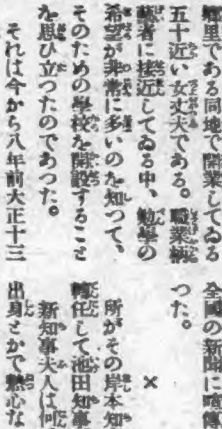 郷里である同地で開業してゐる
五十近い女丈夫である。職業婦
に接近してゐる中、勉學の
希望が非常に多いのを知つて、
そのための學校を開設すること
を思ひ立つたのであつた。
それは今から八年前大正十三
全國の新聞に喧傳
つた。
×
所がその岸本知
轉任して池田知事
新知事夫人は何
出身とかで熱心な